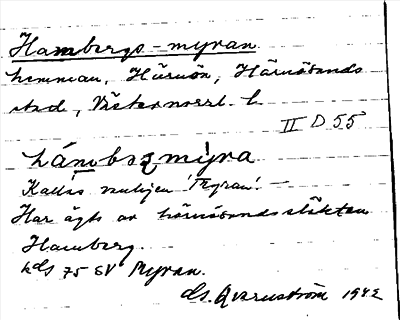 Hambergs-myran
hemman, Härnön, Härnösands
stad, Västernorrl. l.
II D 55
hámbaʒmỳra
Kallas vanligen 'Myran'. —
Har ägts av härnösandssläkten
Hamberg.
kds 75 SV Myran.
ds. Qvarnström 1942